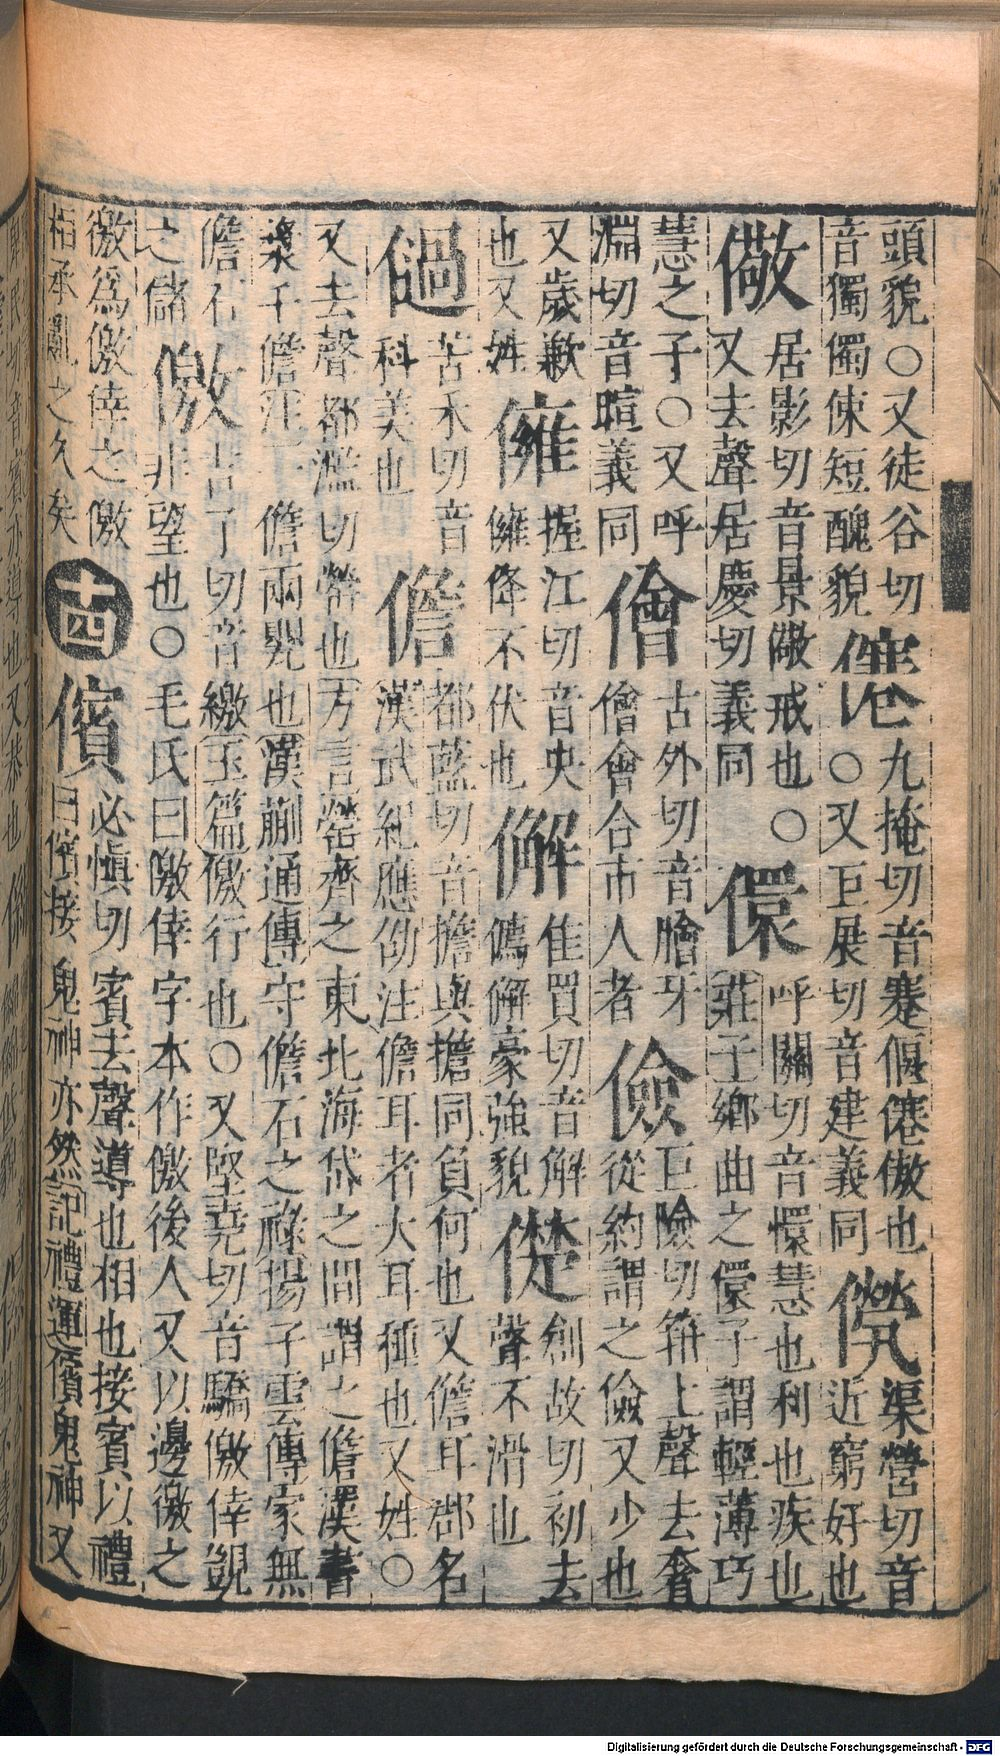 頭貌○又徒谷切
音獨獨倲短醜貌
僊
九掩切音蹇偃僊傲也
○又巨展切音建義同
僗
渠營切音
近窮好也
儆
居影切音景儆戒也○
又去聲居慶切義同
儇
呼關切音懁慧也利也疾也
莊子鄉曲之儇子謂輕薄巧
慧之子○又呼
淵切音暄義同
儈
古外切音膾牙
儈會合市人者
儉
巨險切箝上聲去奢
從約謂之儉又少也
又歲歉
也又姓
㒕
握江切音央
㒕降不伏也
㒑
隹買切音解
㒑豪強貌
儊
創故切初去
聲不滑也
㗻
苦禾切音
科美也
儋
都藍切音擔與擔同負何也又儋耳郡名
漢武紀應劭注儋耳者大耳種也又姓○
又去聲都濫切甖也方言甖齊之東北海岱之間謂之儋漢書
漿千儋注一儋兩甖也漢蒯通傳守儋石之祿揚子雲傳家無
儋石
之儲
儌
吉了切音繳玉篇儌行也○又堅堯切音驕儌倖覬
非望也○毛氏曰儌倖字本作儌後人又以邊徼之
徼爲儌倖之儌
相承亂之久矣
十四
儐
必愼切賓去聲導也相也接賓以禮
曰儐接鬼神亦然記禮運儐鬼神又
Digitalisierung gefördert durch die Deutsche Forschungsgemeinschaft - DFG